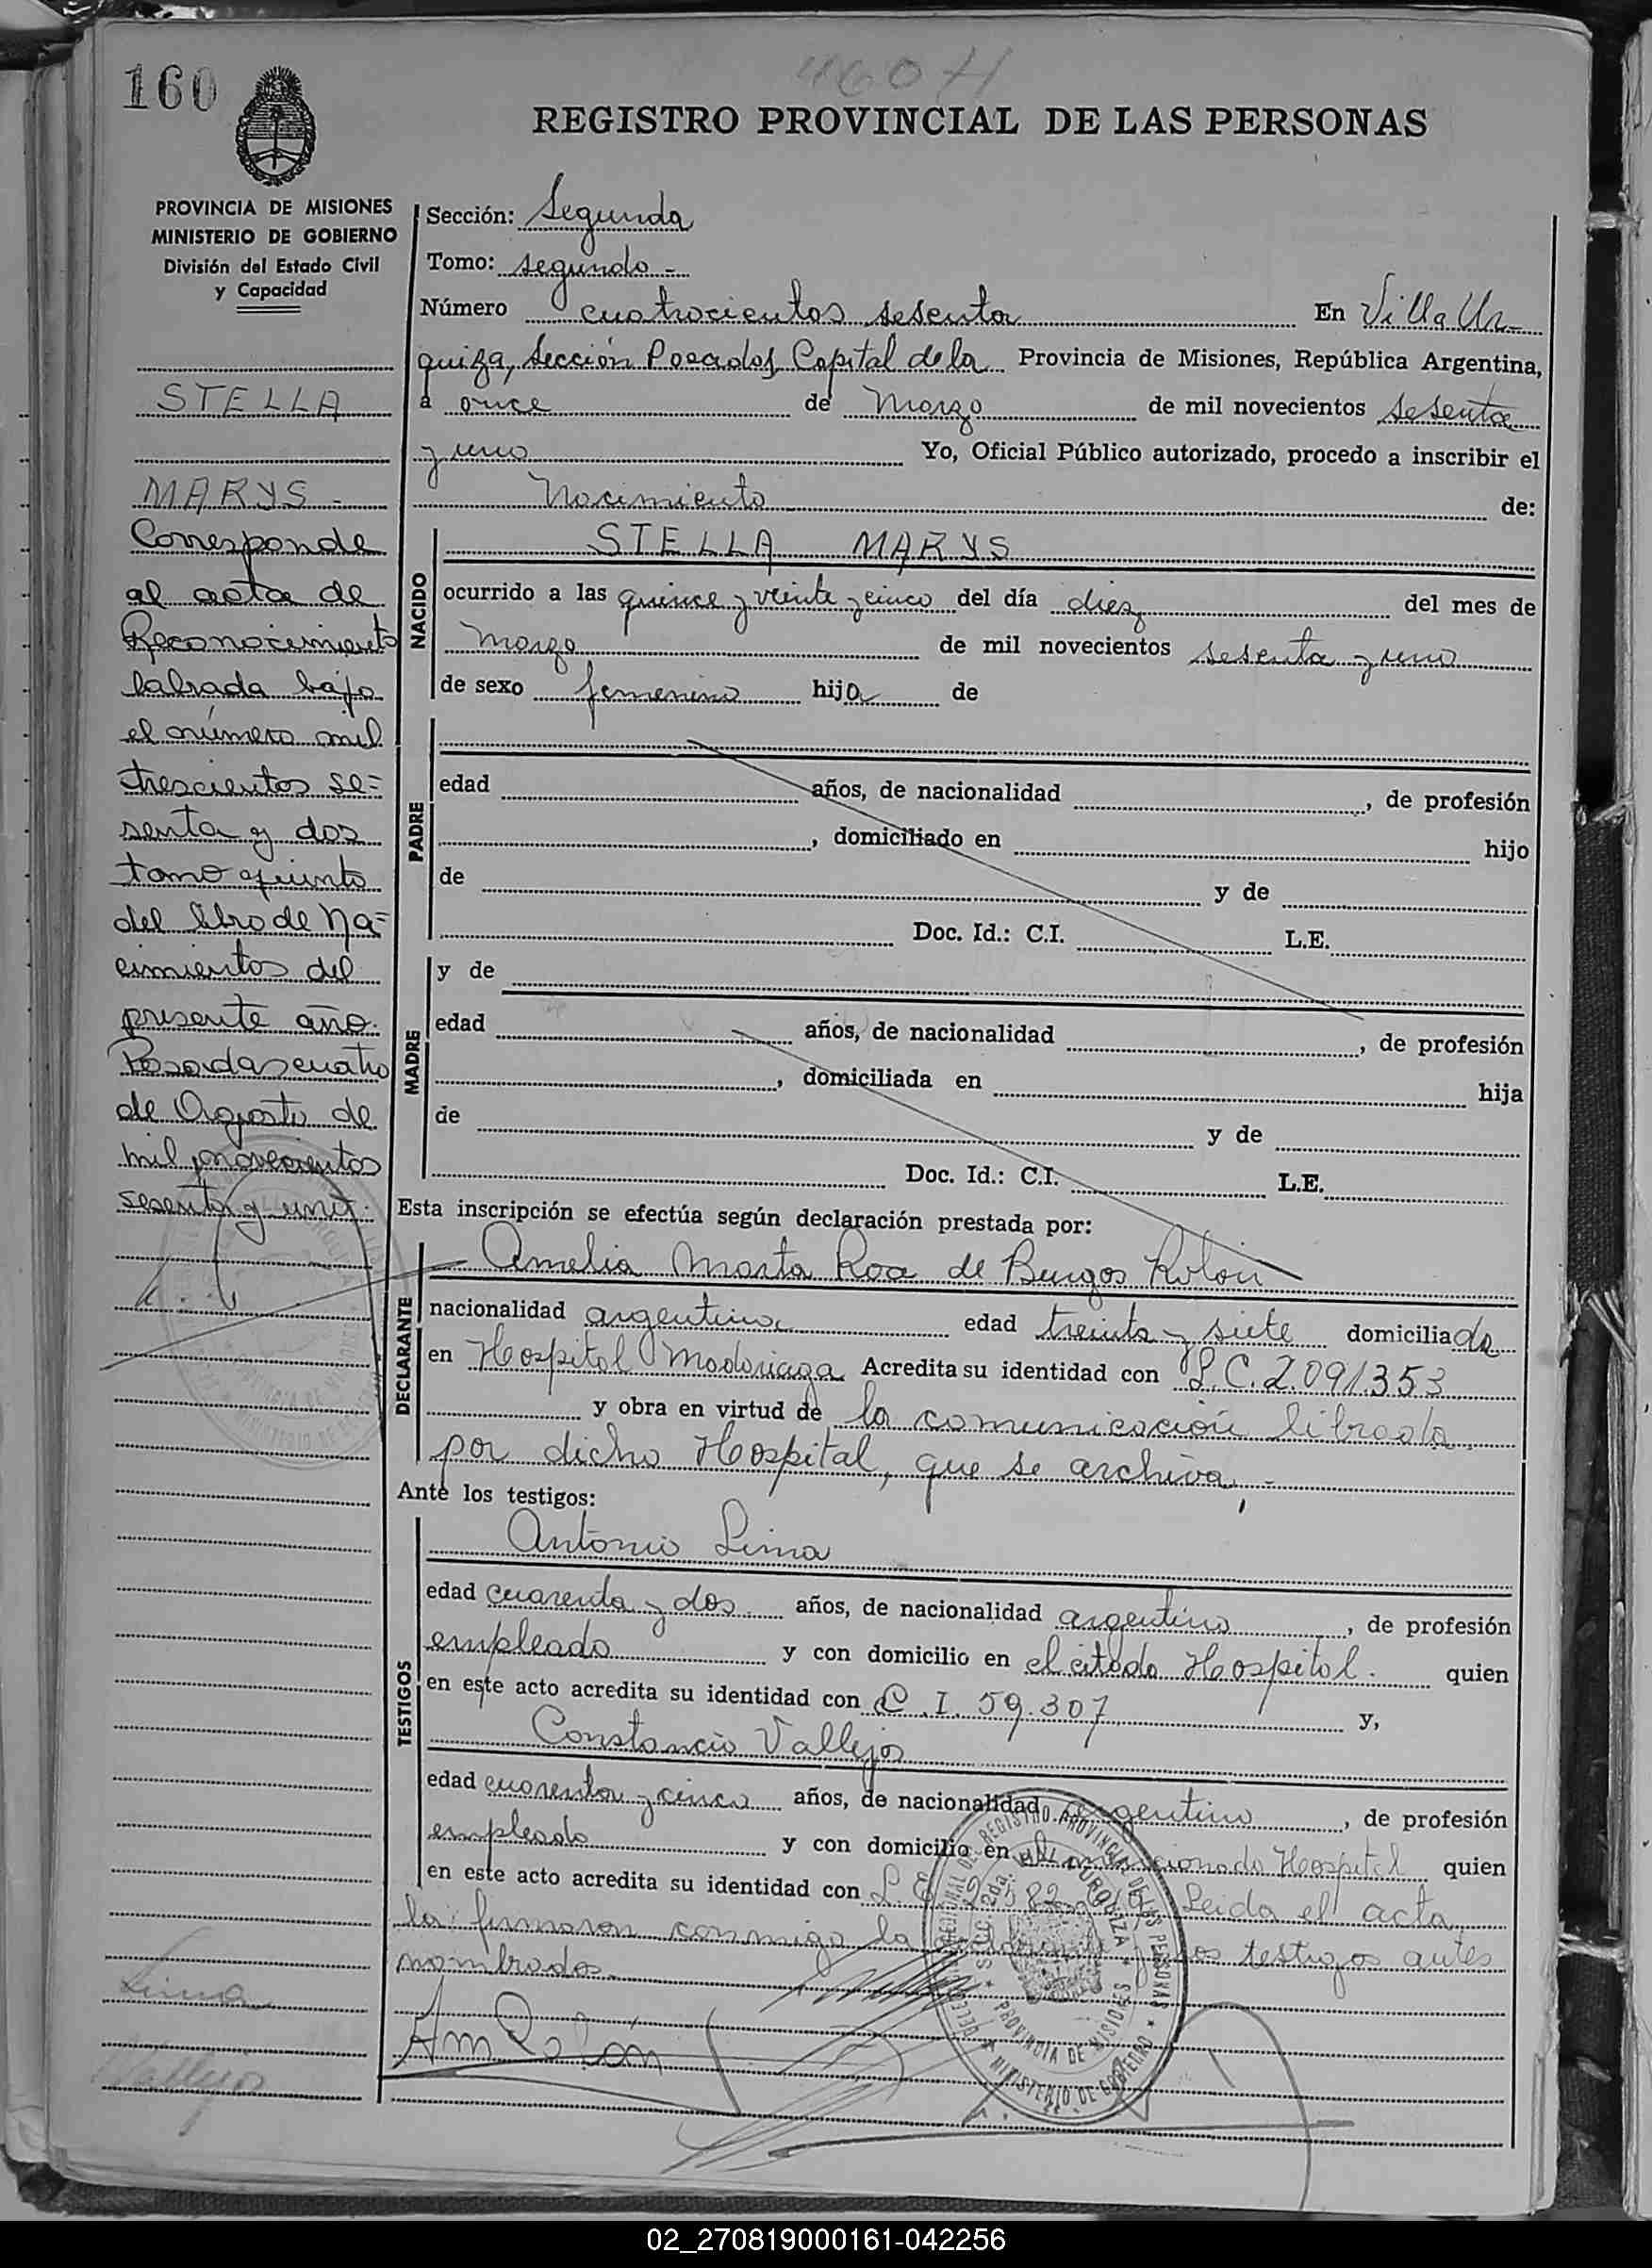 160
460 H
REGISTRO PROVINCIAL DE LAS PERSONAS
PROVINCIA DE MISIONES
MINISTERIO DE GOBIERNO
División del Estado Civil
y Capacidad
STELLA
MARYS -
Corresponde
al acta de
Reconocimiento
labrada bajo
el número mil
trescientos se=
senta y dos
tomo quinto
del libro de Na=
cimientos del
presente año.
Posadas cuatro
de Agosto de
mil novecientos
sesenta y uno.
Lima
Vallejo
Sección: Segunda
Tomo: segundo -
Número cuatrocientos sesenta En Villa Ur-
quiza, Sección Posadas Capital de la Provincia de Misiones, República Argentina,
a once de Marzo de mil novecientos sesenta
y uno Yo, Oficial Público autorizado, procedo a inscribir el
Nacimiento de:
NACIDO
STELLA MARYS
ocurrido a las quince y veinte y cinco del día diez del mes de
Marzo de mil novecientos sesenta y uno
de sexo femenino hija de
PADRE
edad años, de nacionalidad , de profesión
, domiciliado en hijo
de y de
Doc. Id.: C.I. L.E.
MADRE
y de
edad años, de nacionalidad , de profesión
, domiciliada en hija
de y de
Doc. Id.: C.I. L.E.
Esta inscripción se efectúa según declaración prestada por:
DECLARANTE
Amelia Marta Roa de Burgos Rolón
nacionalidad argentina edad treinta y siete domiciliada
en Hospital Madariaga Acredita su identidad con L.C. 2.091.353
y obra en virtud de la comunicación librada
por dicho Hospital, que se archiva,-
Ante los testigos:
TESTIGOS
Antonio Lima
edad cuarenta y dos años, de nacionalidad argentino , de profesión
empleado y con domicilio en el citado Hospital. quien
en este acto acredita su identidad con C.I. 59.307 y,
Constancio Vallejos
edad cuarenta y cinco años, de nacionalidad argentino , de profesión
empleado y con domicilio en Hospital quien
en este acto acredita su identidad con L.E. Leida el acta
la firmaron conmigo la testigos antes
nombrados.
AmRolón
REGISTRO PROVINCIAL DE LAS PERSONAS
SECC. 2da. VILLA URQUIZA
PROVINCIA DE MISIONES
MINISTERIO DE GOBIERNO
02_270819000161-042256